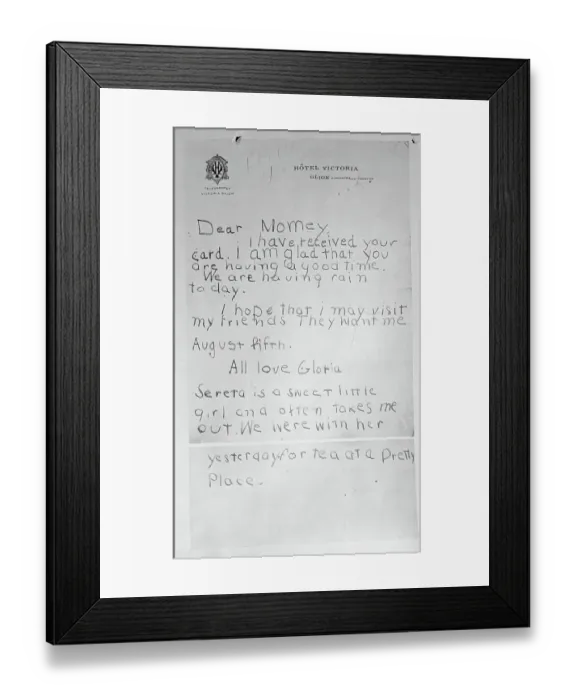 HÔTEL VICTORIA
DIJON
Dear Momey
I have received your
card. I am glad that you
are having a good time.
We are having rain
to day.
I hope that i may visit
my friends They want me
August fifth.
All love Gloria
Sereta is a sweet little
girl and often takes me
out. We were with her
yesterday for tea at a Pretty
Place.